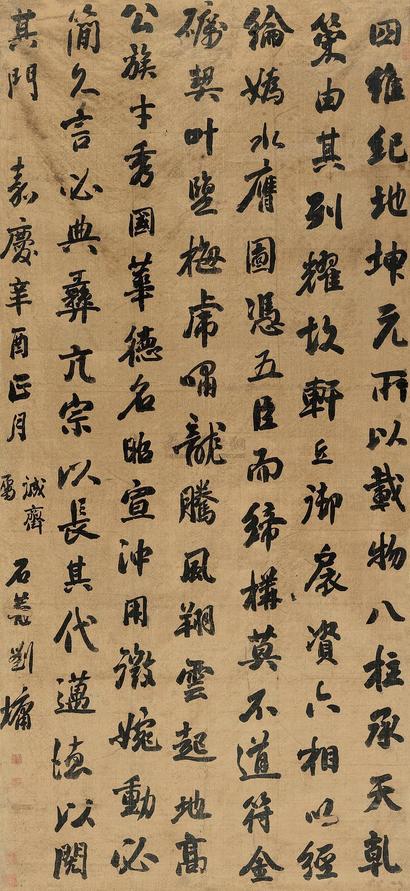 四維紀地坤元所以載物八柱承天乾
策由其列耀故軒丘御扆資六相以經
綸媯水膺圖憑五臣而締構莫不道符金
礪契叶鹽梅虎嘯龍騰風翔雲起地高
公族才秀國華德名昭宣沖用徽婉動必
簡久言必典彝亢宗以長其代邁德以閎
其門 嘉慶辛酉正月
誠齋
屬
石菴劉墉